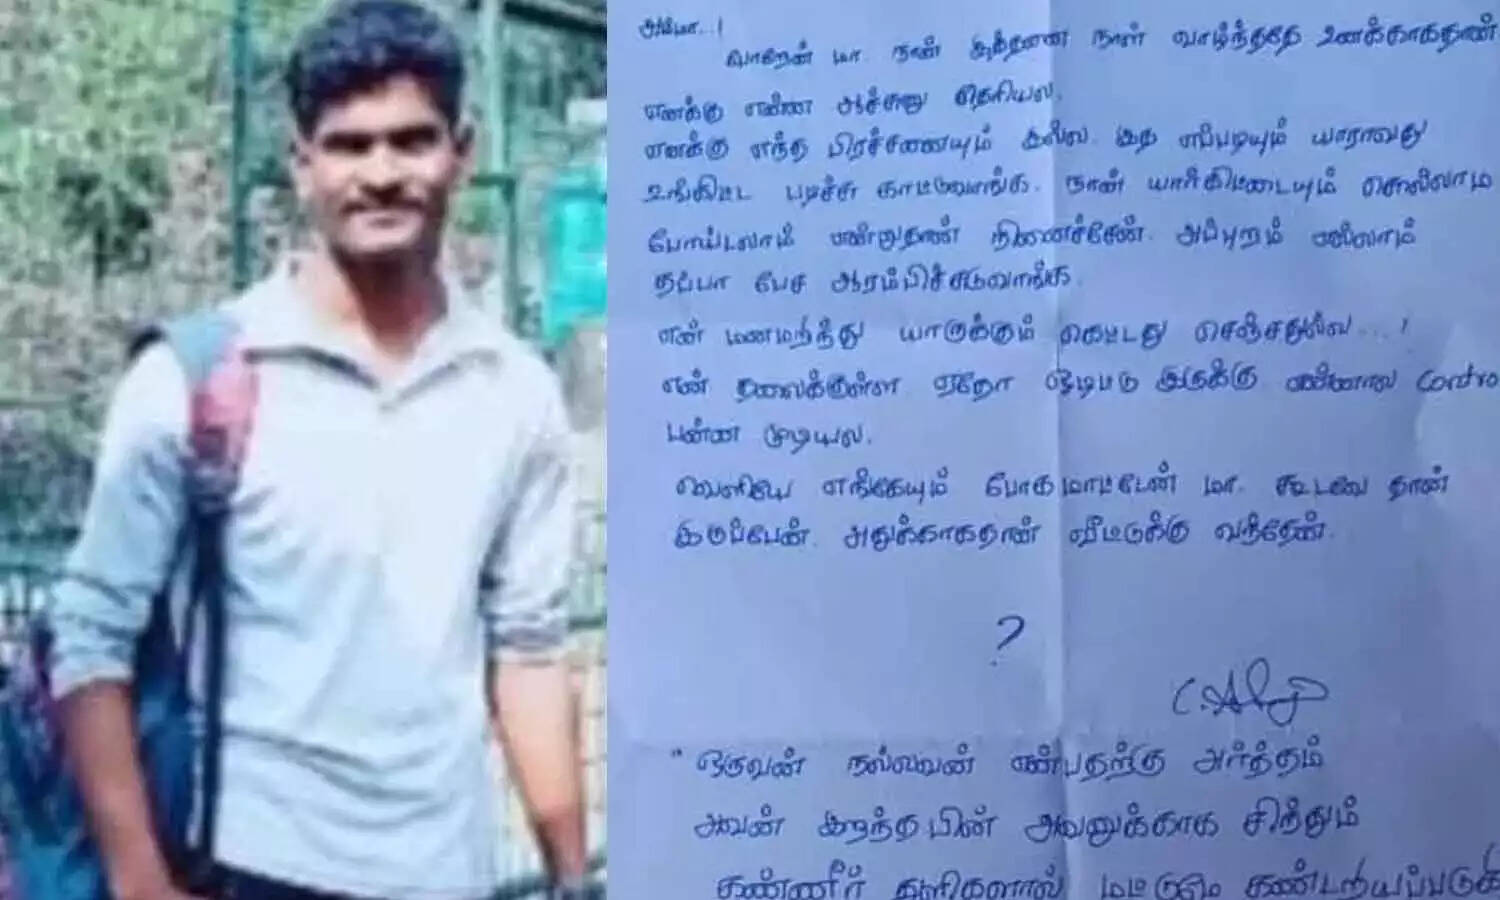 அம்மா..!
வாறேன் மா. நான் இத்தனை நாள் வாழ்ந்ததே உனக்காகதான்
எனக்கு என்ன ஆச்சுனு தெரியல.
எனக்கு எந்த பிரச்சனையும் இல்ல. இத எப்படியும் யாராவது
உங்கிட்ட படிச்சு காட்டுவாங்க. நான் யார்கிட்டையும் சொல்லாம
போய்டலாம் என்றுதான் நினைச்சேன். அப்புறம் எல்லாம்
தப்பா பேச ஆரம்பிச்சுடுவாங்க.
என் மனமறிந்து யாருக்கும் கெட்டது செஞ்சதுல்ல...!
என் தலைக்குள்ள ஏதோ ஓடிபடு இருக்கு என்னால Contro
பண்ண முடியல.
வெளியே எங்கேயும் போகமாட்டேன் மா. கூடவே தான்
இருப்பேன். அதுக்காகதான் வீட்டுக்கு வந்தேன்.
?
"ஒருவன் நல்லவன் என்பதற்கு அர்த்தம்
அவன் இறந்தபின் அவனுக்காக சிந்தும்
கண்ணீர் துளிகளால் மட்டுமே கண்டறியப்படு